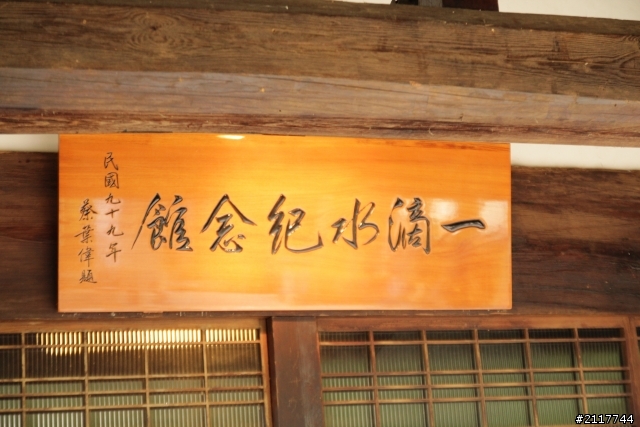 一滴水纪念館
民國九十九年
蔡葉偉題
#2117744